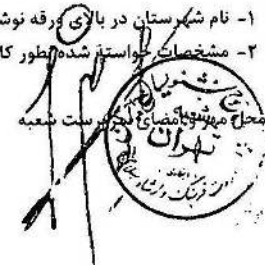 ۱- نام شهرستان در بالای ورقه نوش
۲- مشخصات خواسته شده بطور کا
محل مهر و امضای سرپرست شعبه
تهران
فرهنگ و ارشاد